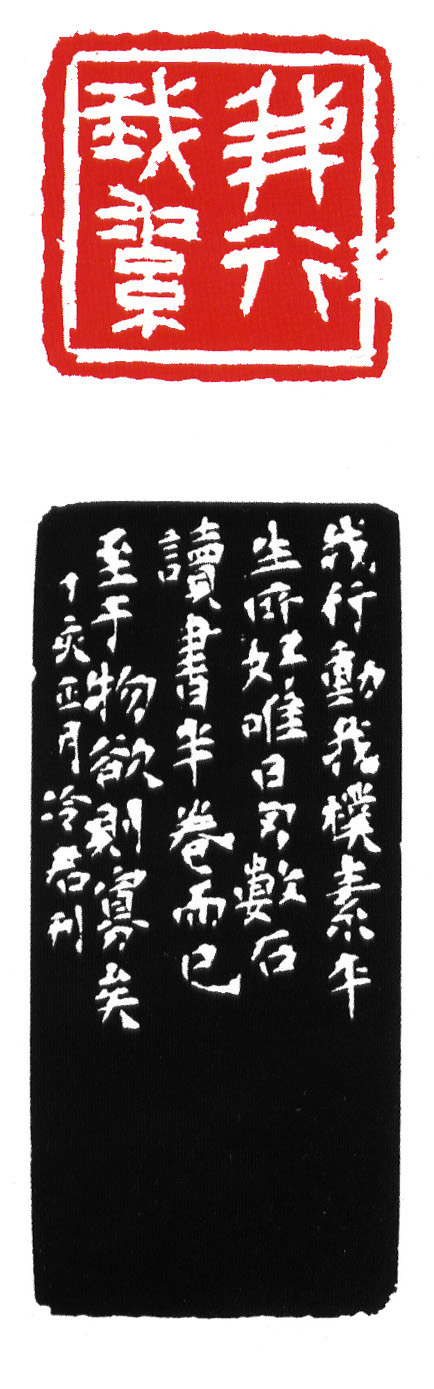 我行
我素
我行動我樸素平
生所好唯日習數石
讀書半卷而已
至于物欲則寡矣
丁亥正月冷君刊